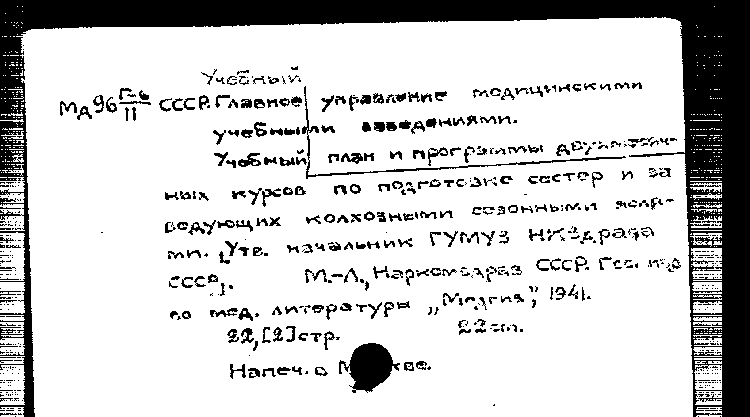 Учебный
Мд96 Г-6/II СССР. Главное управление медицинскими
учебными заведениями.
Учебный план и программы двухмесяч-
ных курсов по подготовке сестер и за
ведующих колхозными сезонными ясля-
ми. [Утв. начальник ГУМУЗ НКЗдрава
СССР]. М.-Л., Наркомздрав СССР. Гос. изд
во мед. литературы „Медгиз”, 1941.
22, [2] стр. 22 см.
Напеч. в